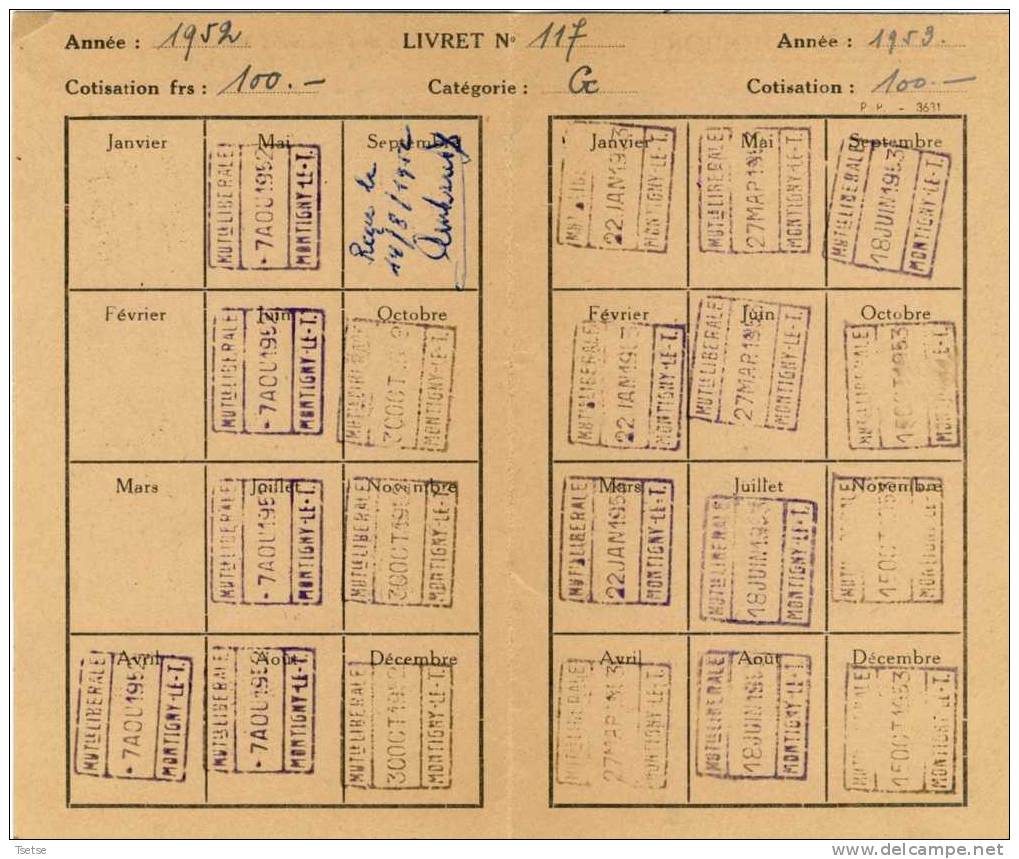 Année : 1952 LIVRET Nº 117 Année : 1953.
Cotisation frs : 100.- Catégorie : Cotisation : 100.-
P. P. - 3631
Janvier Mai Septembre
MUTlle LIBERALE
- 7 AOU 1952
MONTIGNY-LE-T.
Reçu le
14/8/1952
Février Juin Octobre
MUTlle LIBERALE
- 7 AOU 1952
MONTIGNY-LE-T.
MUTlle LIBERALE
30 OCT 1952
MONTIGNY-LE-T.
Mars Juillet Novembre
MUTlle LIBERALE
- 7 AOU 1952
MONTIGNY-LE-T.
MUTlle LIBERALE
30 OCT 1952
MONTIGNY-LE-T.
Avril Août Décembre
MUTlle LIBERALE
- 7 AOU 1952
MONTIGNY-LE-T.
MUTlle LIBERALE
- 7 AOU 1952
MONTIGNY-LE-T.
MUTlle LIBERALE
30 OCT 1952
MONTIGNY-LE-T.
Janvier Mai Septembre
MUTlle LIBE
22 JAN 1953
MONTIGNY-LE-T.
MUTlle LIBERALE
27 MAR 1953
MONTIGNY-LE-T.
MUTlle LIBERALE
18 JUIN 1953
MONTIGNY-LE-T.
Février Juin Octobre
MUTlle LIBERALE
22 JAN 1953
MONTIGNY-LE-T.
MUTlle LIBERALE
27 MAR 1953
MONTIGNY-LE-T.
MUTlle LIBERALE
15 OCT 1953
MONTIGNY-LE-T.
Mars Juillet Novembre
MUTlle LIBERALE
22 JAN 1953
MONTIGNY-LE-T.
MUTlle LIBERALE
18 JUIN 1953
MONTIGNY-LE-T.
MUTlle LIBERALE
15 OCT 1953
MONTIGNY-LE-T.
Avril Août Décembre
MUTlle LIBERALE
27 MAR 1953
MONTIGNY-LE-T.
MUTlle LIBERALE
18 JUIN 1953
MONTIGNY-LE-T.
MUTlle LIBERALE
15 OCT 1953
MONTIGNY-LE-T.
Tsetse
delcampe.net